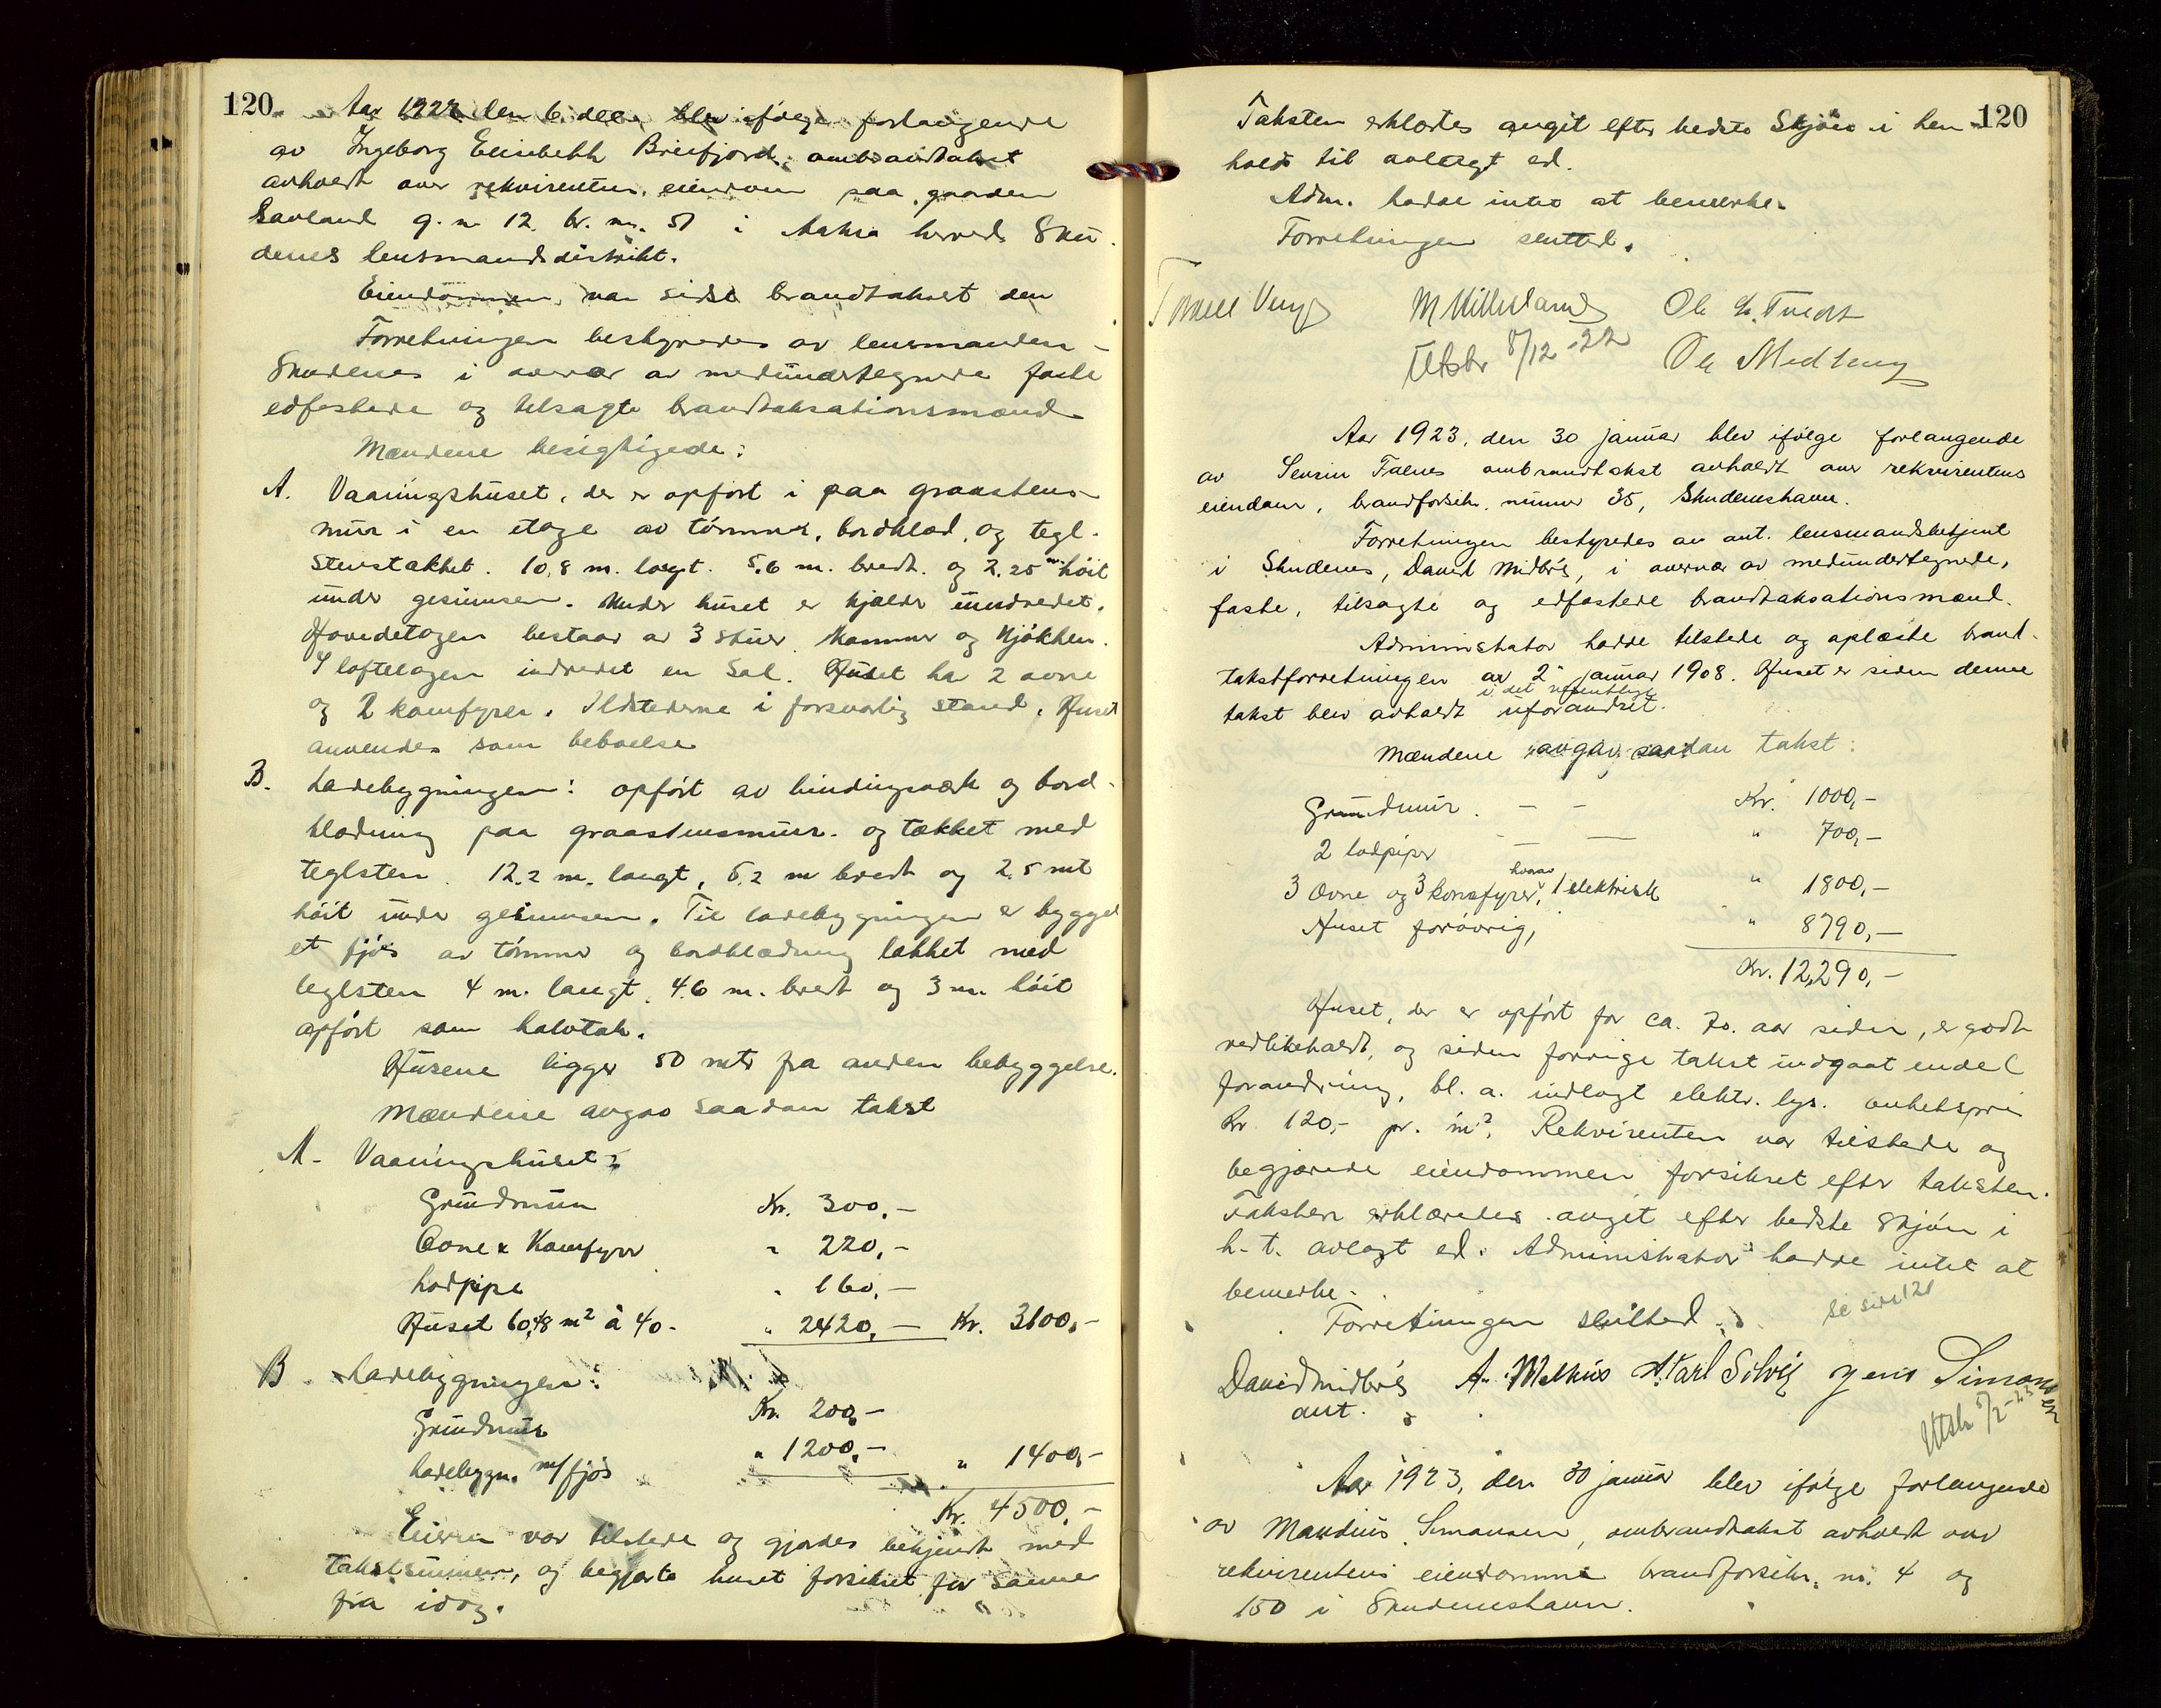 120
Aar 1922 den 6. dec. blev ifölge forlangende
av Ingeborg Elisebeth Breifjord, ombrandtakst
avholdt over rekvirentens eiendom paa gaarden
Sævland g. n. 12. br. nr. 51 i Aakra herred, Sku-
denes lensmandsdistrikt.
Eiendommen var sidst brandtakset den
Forretningen bestyredes av lensmanden i
Skudenes i overvær av medundertegnede faste
edfæstede og tilsagte brandtaksationsmænd
Mændene besigtigede:
A. Vaaningshuset, der er opfört i paa graastens-
mur i en etage av tömmer, bordklæd, og tegl-
stenstækket. 10,8 m. langt. 5,6 m. bredt. og 2,25 m höit
under gesimsen. Under huset er kjelder indredet.
Hovedetagen bestaar av 3 stuer, kammer og kjökken.
I loftetagen indredet en Sal. Huset har 2 ovne
og 2 komfyrer. Ildstederne i forsvarlig stand. Huset
anvendes som beboelse
B. Ladebygningen: opfört av bindingsverk og bord-
klædning paa graastensmur og tækket med
teglsten. 12.2 m. langt, 5.2 m bredt og 2.5 mt
höit under gesimsen. Til ladebygningen er bygget
et fjös av tömmer og bordklædning tækket med
teglsten 4 m. langt, 4.6 m. bredt og 3 m. höit
opfört som halvtak.
Husene ligger 50 mtr fra anden bebyggelse.
Mændene avgav saadan takst
A. Vaaningshuset:
Grundmuren Kr. 300,-
Ovne & Komfyrer " 220,-
Lodpipe " 160,-
Huset 60,48 m² à 40.- " 2420,- Kr. 3100,-
B. Ladebygningen:
Grundmur Kr. 200,-
Ladebygn. m/fjös " 1200,- " 1400,-
Kr. 4500,-
Eieren var tilstede og gjordes bekjendt med
takstsummen, og begjærte huset forsikret for samme
fra idag.
120
Taksten erklærtes avgit efter bedste Skjön i hen-
hold til avlagt ed.
Adm. hadde intet at bemerke.
Forretningen sluttet.
M Hilleland
Ole Medhaug
Utskr 8/12-22
Aar 1923, den 30 januar blev ifölge forlangende
av Sevrin Falnes ombrandtakst avholdt over rekvirentens
eiendom, brandforsikr. numer 35, Skudeneshavn.
Forretningen bestyredes av aut. lensmandsbetjent
i Skudenes, David Midbös, i overvær av medundertegnede,
faste, tilsagte og edfæstede brandtaksationsmænd.
Administrator hadde tilstede og oplæste brand-
takstforretningen av 2 januar 1908. Huset er siden denne
i det væsentlige
takst blev avholdt uforandret.
Mændene avgav saadan takst:
Grundmur. - - Kr. 1000,-
2 lodpiper - - " 700,-
hvorav
3 ovne og 3 komfyrer, 1 elektrisk " 1800,-
Huset forövrig, " 8790,-
Kr. 12,290,-
Huset, der er opfört for ca. 70. aar siden, er godt
vedlikeholdt, og siden forrige takst undgaat endel
forandring, bl. a. indlagt elektr. lys. enhetspris
Kr 120,- pr. m². Rekvirenten var tilstede og
begjærede eiendommen forsikret efter taksten.
Taksten erklæredes avgit efter bedste skjön i
h. t. avlagt ed. Administrator hadde intet at
bemerke.
Forretningen sluttet.
Se side 121
David Midbös A. Melhus Karl Solvig Jens Simonsen
aut.
Utskr 5/2-23
Aar 1923, den 30 januar blev ifölge forlangende
av Mandius Simonsen, ombrandtakst avholdt over
rekvirentens eiendomme brandforsikr. nr. 4 og
150 i Skudeneshavn.